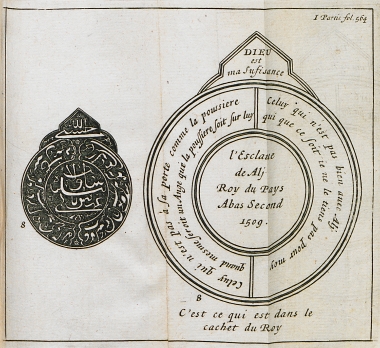 I Partie fol. 564
حسبي الله
8
DIEU
est
ma Sufisance
Celuy qui n'est pas bien avec Alj,
qui que ce soit ie ne le tiens pas pour moy
Celuy qui n'est pas à sa porte comme la pousiere
quand mesme seroit un Ange que la pousiere soit sur luy
l'Esclaue
de Alj
Roy du Pays
Abas Second
1509.
8
C'est ce qui est dans le
cachet du Roy